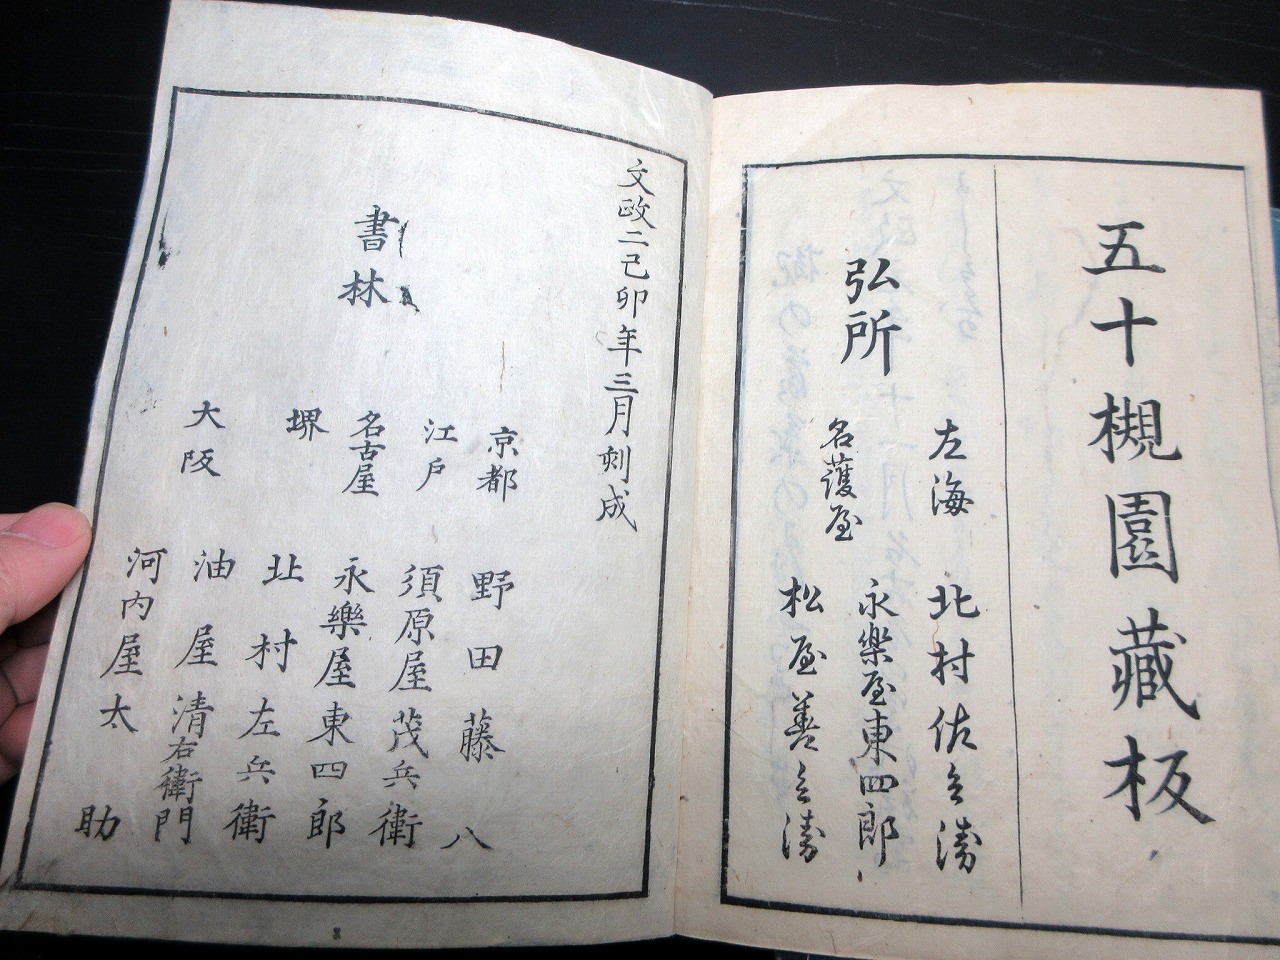 五十槻園藏板
弘所
左海 北村佐兵衛
名護屋 永樂屋東四郎
松屋善兵衛
文政二己卯年三月刻成
書林
京都 野田藤八
江戸 須原屋茂兵衛
名古屋 永樂屋東四郎
堺 北村左兵衛
大阪 油屋清右衛門
河内屋太助